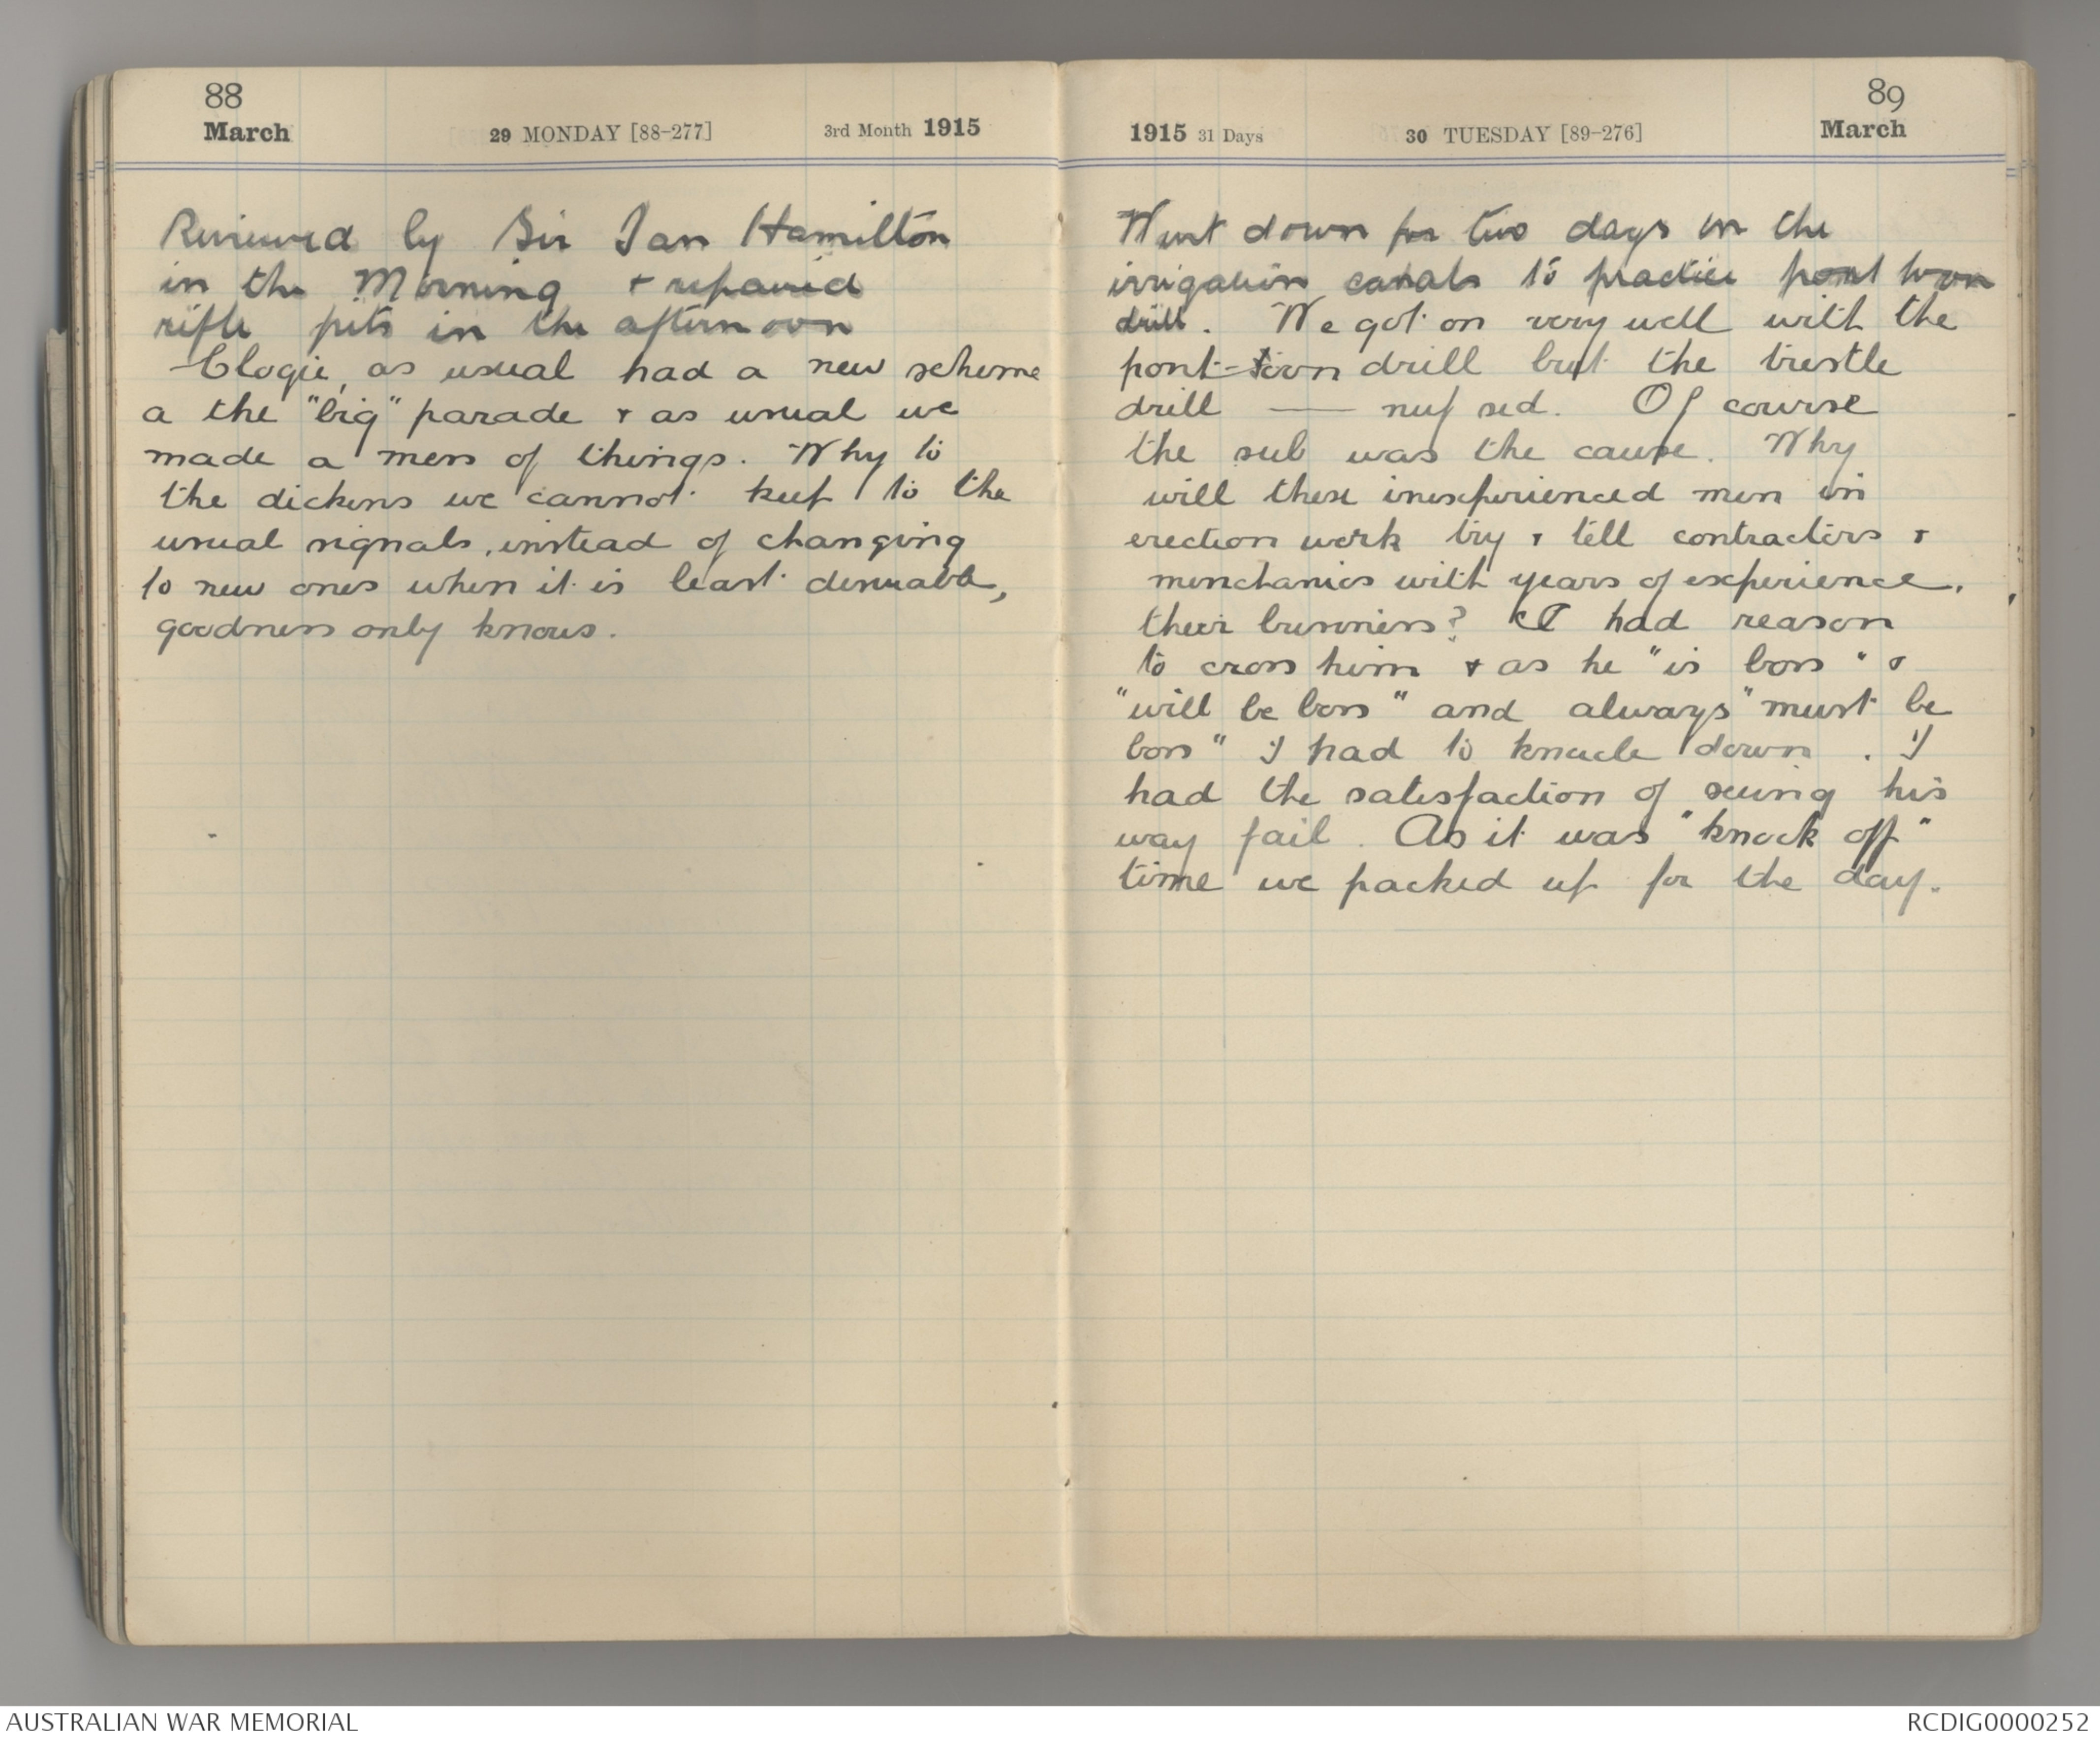 88
March 29 MONDAY [88-277] 3rd Month 1915
Reviewed by Sir Ian Hamilton
in the Morning & repaired
rifle pits in the afternoon
Clogie, as usual had a new scheme
a the "big" parade & as usual we
made a mess of things. Why to
the dickens we cannot keep to the
usual signals, instead of changing
to new ones when it is least desirable,
goodness only knows.
89
1915 31 Days 30 TUESDAY [89-276] March
Went down for two days on the
irrigation canals to practice pont toon
drill. We got on very well with the
pont-toon drill but the trestle
drill — nuf sed. Of course
the sub was the cause. Why
will these inexperienced men in
erection work try & tell contractors &
menchanics with years of experience,
their business? I had reason
to cross him & as he "is boss" &
"will be boss" and always "must be
boss" I had to knucle down. I
had the satisfaction of seeing his
way fail. As it was "knock off"
time we packed up for the day.
AUSTRALIAN WAR MEMORIAL
RCDIG0000252